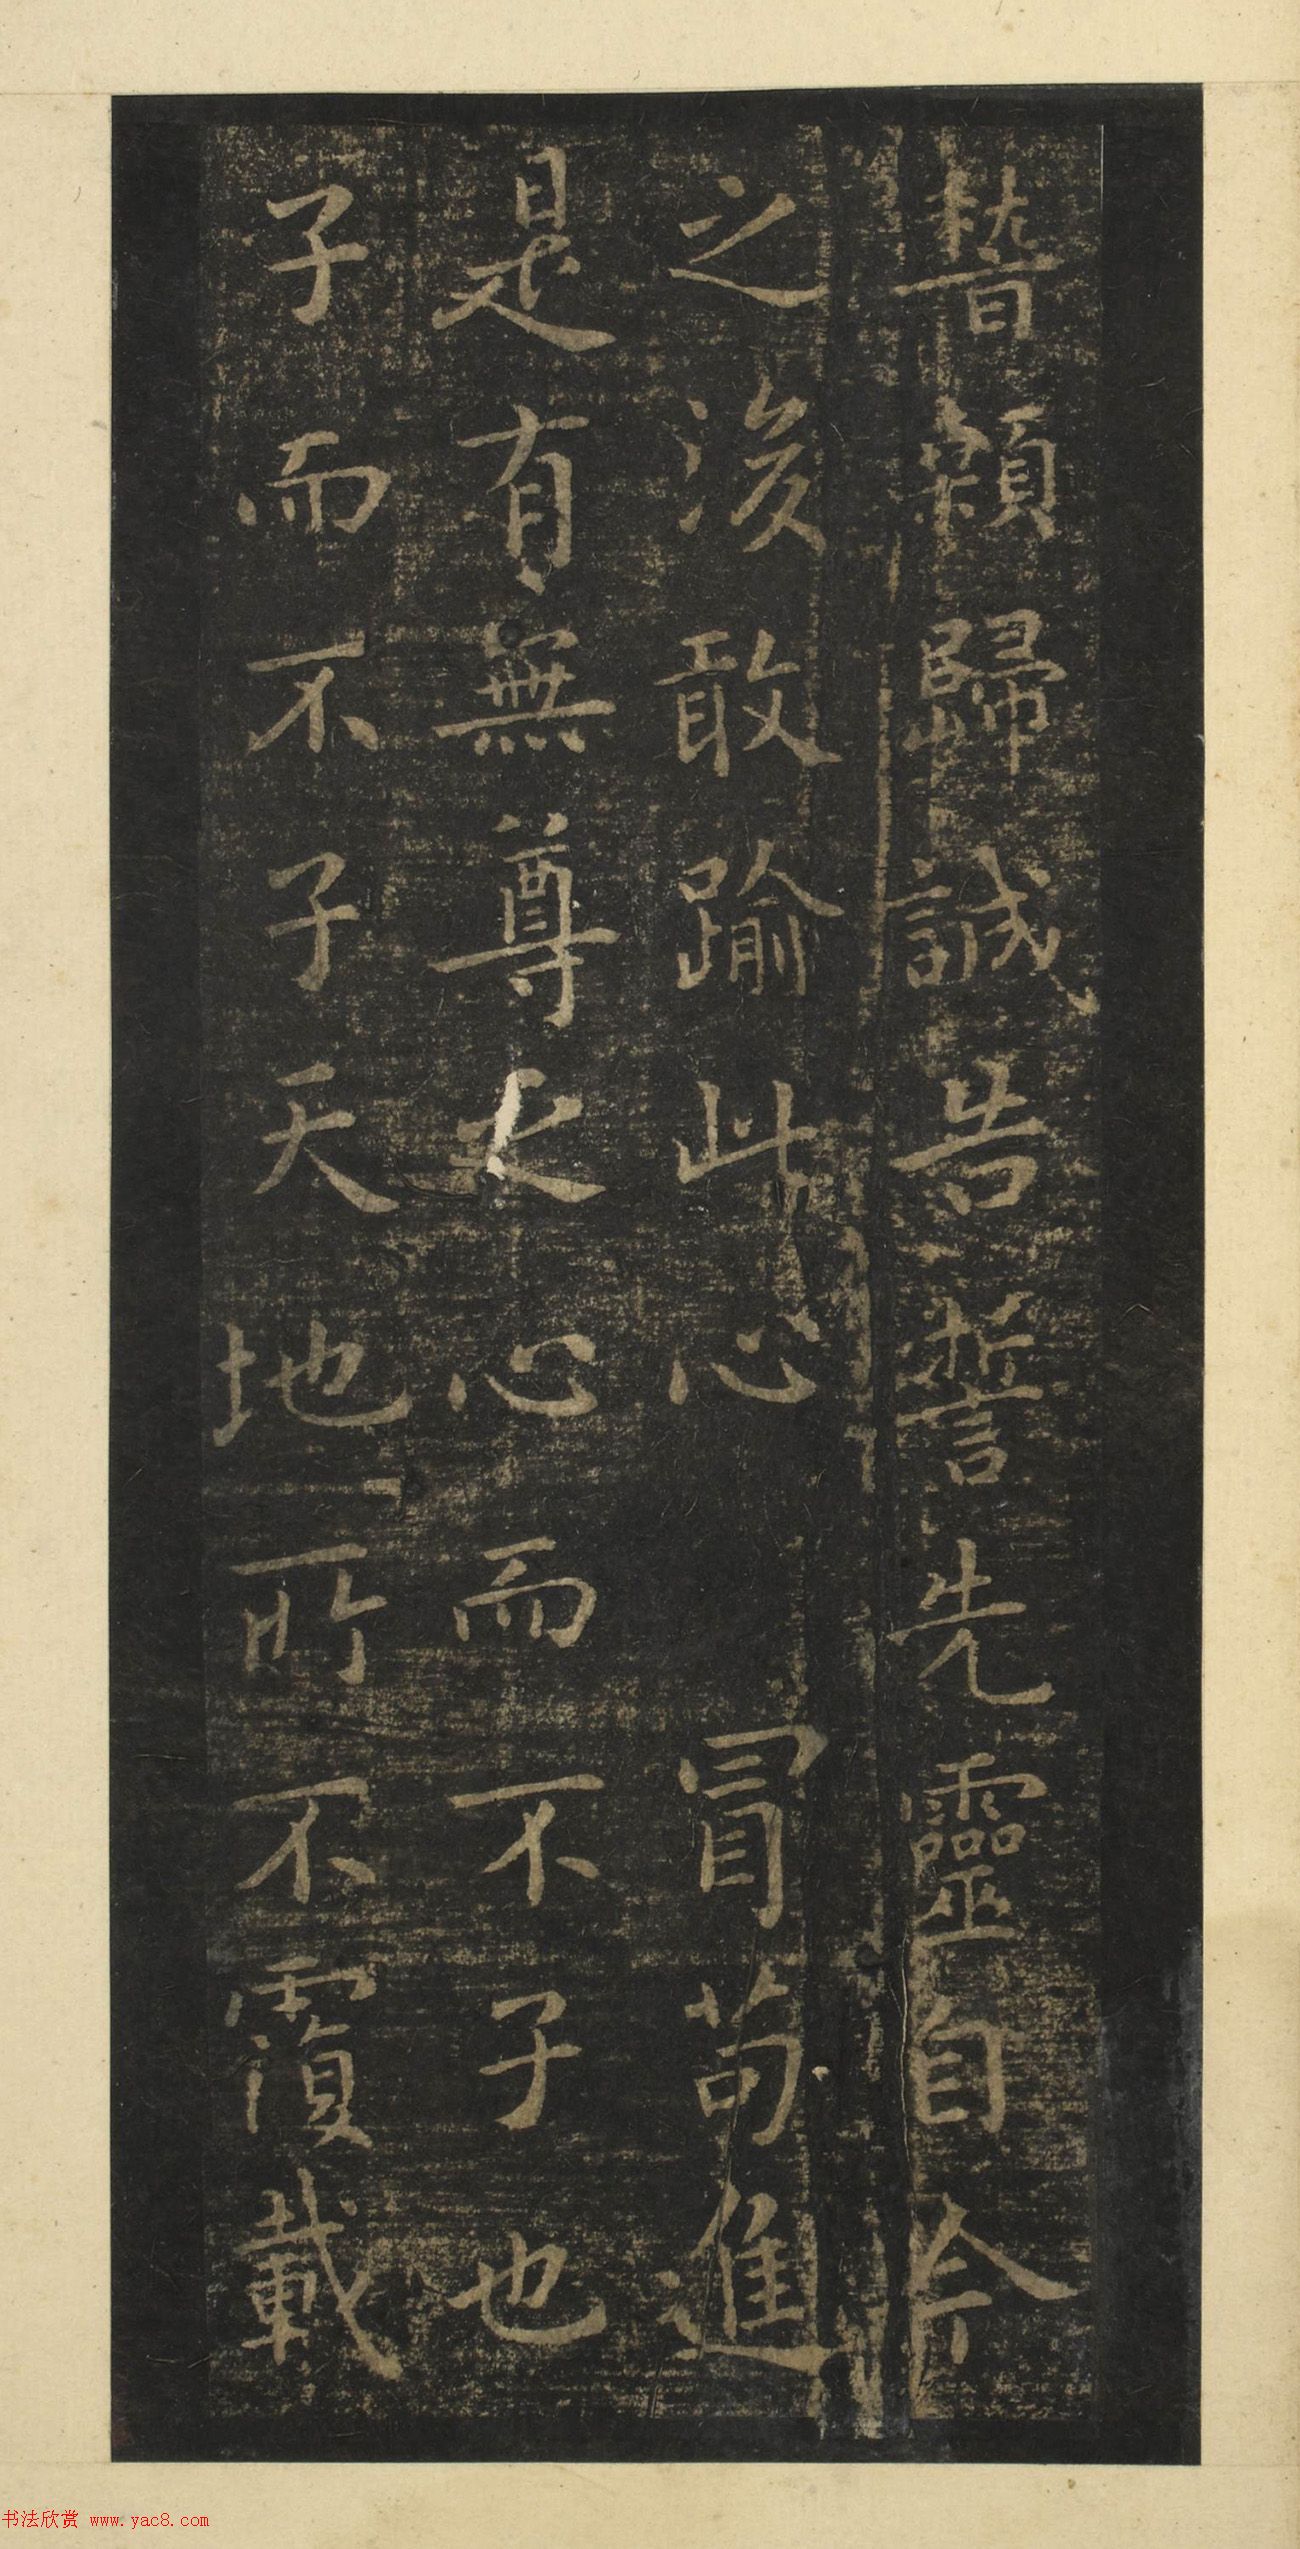 稽顙歸誠告誓先靈自今
之後敢踰此心冒苟進
是有無尊大心而不子也
子而不子天地所不覆載
书法欣赏 www.yac8.com